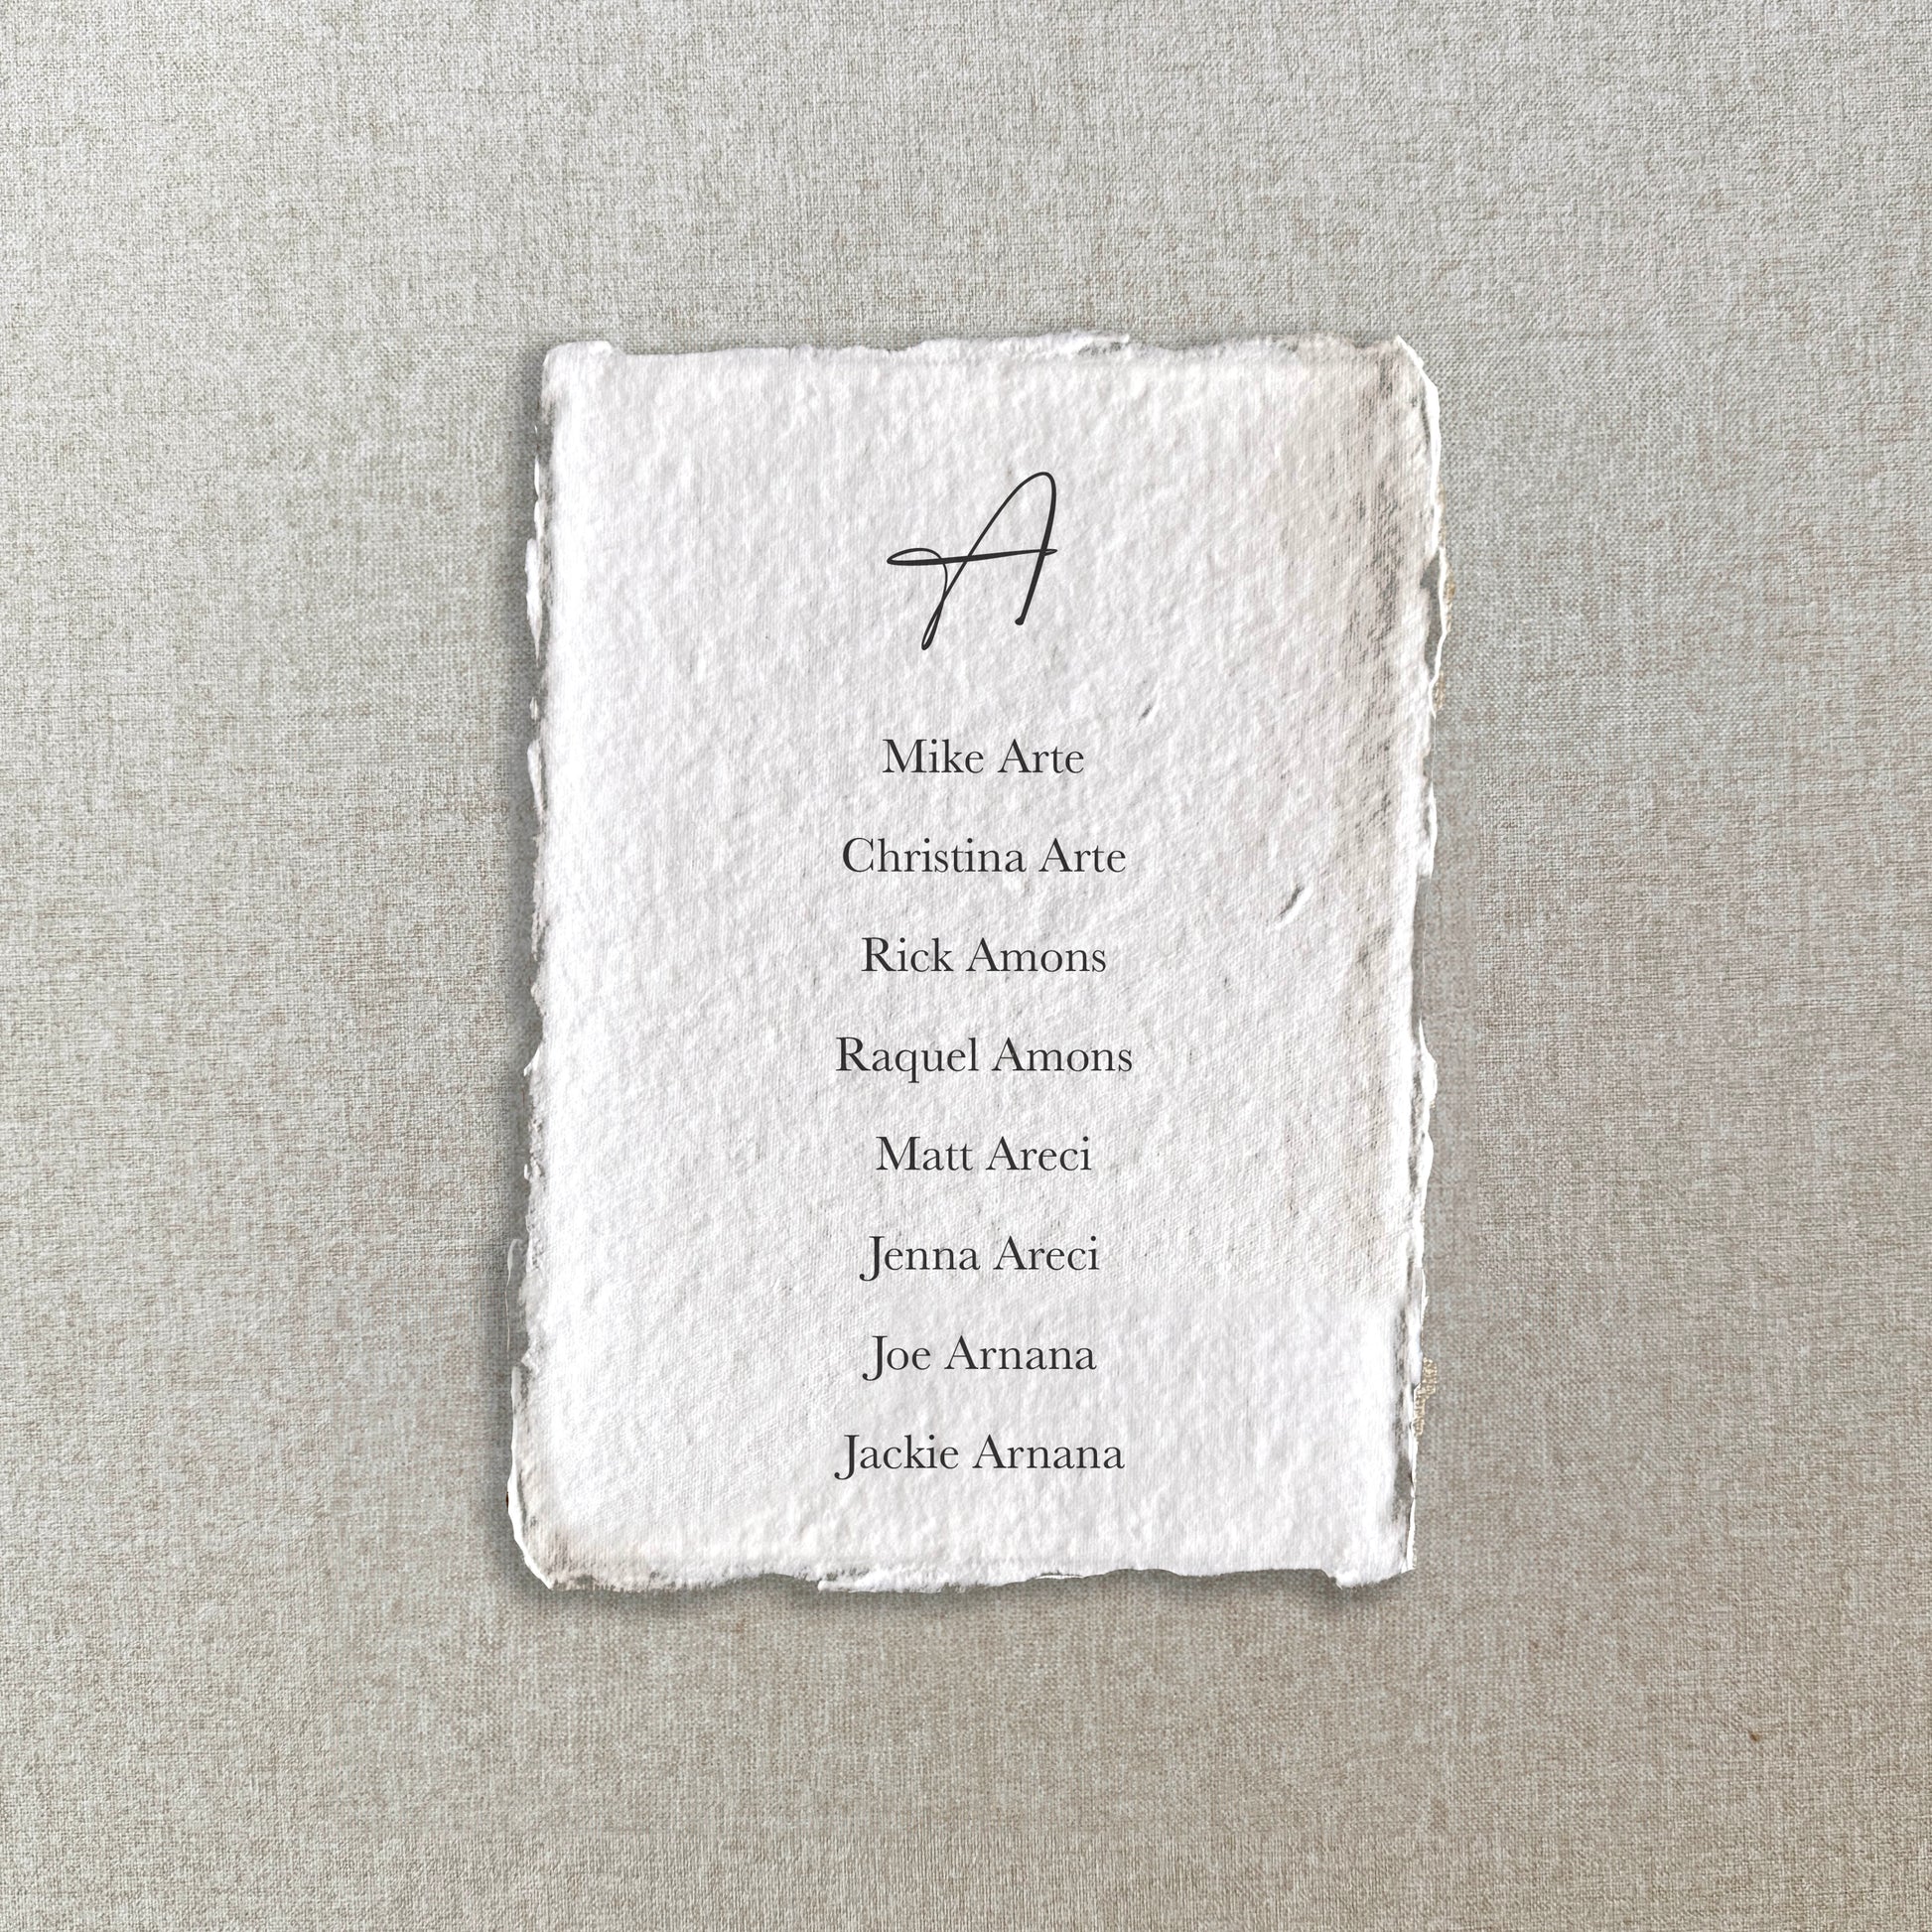 A
Mike Arte
Christina Arte
Rick Amons
Raquel Amons
Matt Areci
Jenna Areci
Joe Arnana
Jackie Arnana